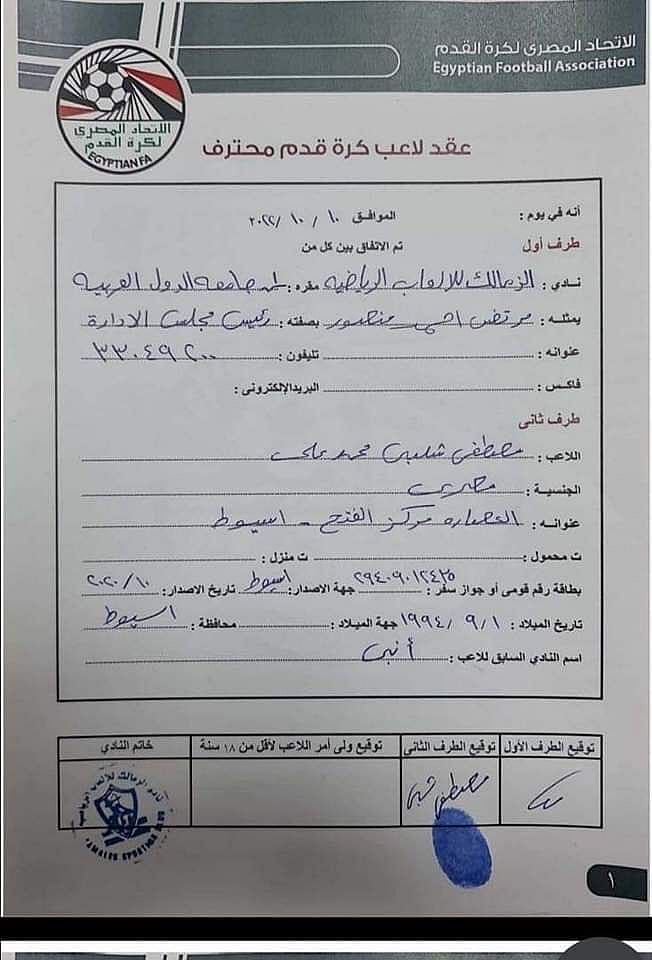 الاتحاد المصرى لكرة القدم
Egyptian Football Association
الاتحاد المصرى
لكرة القدم
EGYPTIAN FA
عقد لاعب كرة قدم محترف
أنه في يوم : الموافق ١٠ / ١٠ / ٢٠٢٢
طرف أول تم الاتفاق بين كل من
نادي : الزمالك للالعاب الرياضيه مقره : جامعة الدول العربيه
يمثله : مرتضى احمد منصور بصفته : رئيس مجلس الادارة
عنوانه : تليفون : ٣٣٠٤٩٢٠٠
فاكس : البريد الإلكترونى :
طرف ثانى
اللاعب : مصطفى شلبى محمد على
الجنسية : مصرى
عنوانه : مركز الفتح - اسيوط
ت محمول : ت منزل :
بطاقة رقم قومى أو جواز سفر : ٢٩٤٠٩٠١٢٤٢٥ جهة الاصدار : اسيوط تاريخ الاصدار : ٢٠٢٠/١٠
تاريخ الميلاد : ١٩٩٤/٩/١ جهة الميلاد : محافظة : اسيوط
اسم النادي السابق للاعب : أنبى
توقيع الطرف الأول توقيع الطرف الثانى توقيع ولى أمر اللاعب لأقل من ١٨ سنة خاتم النادي
مصطفى
نادى الزمالك للالعاب الرياضية
ZAMALEK SPORTING CLUB
١